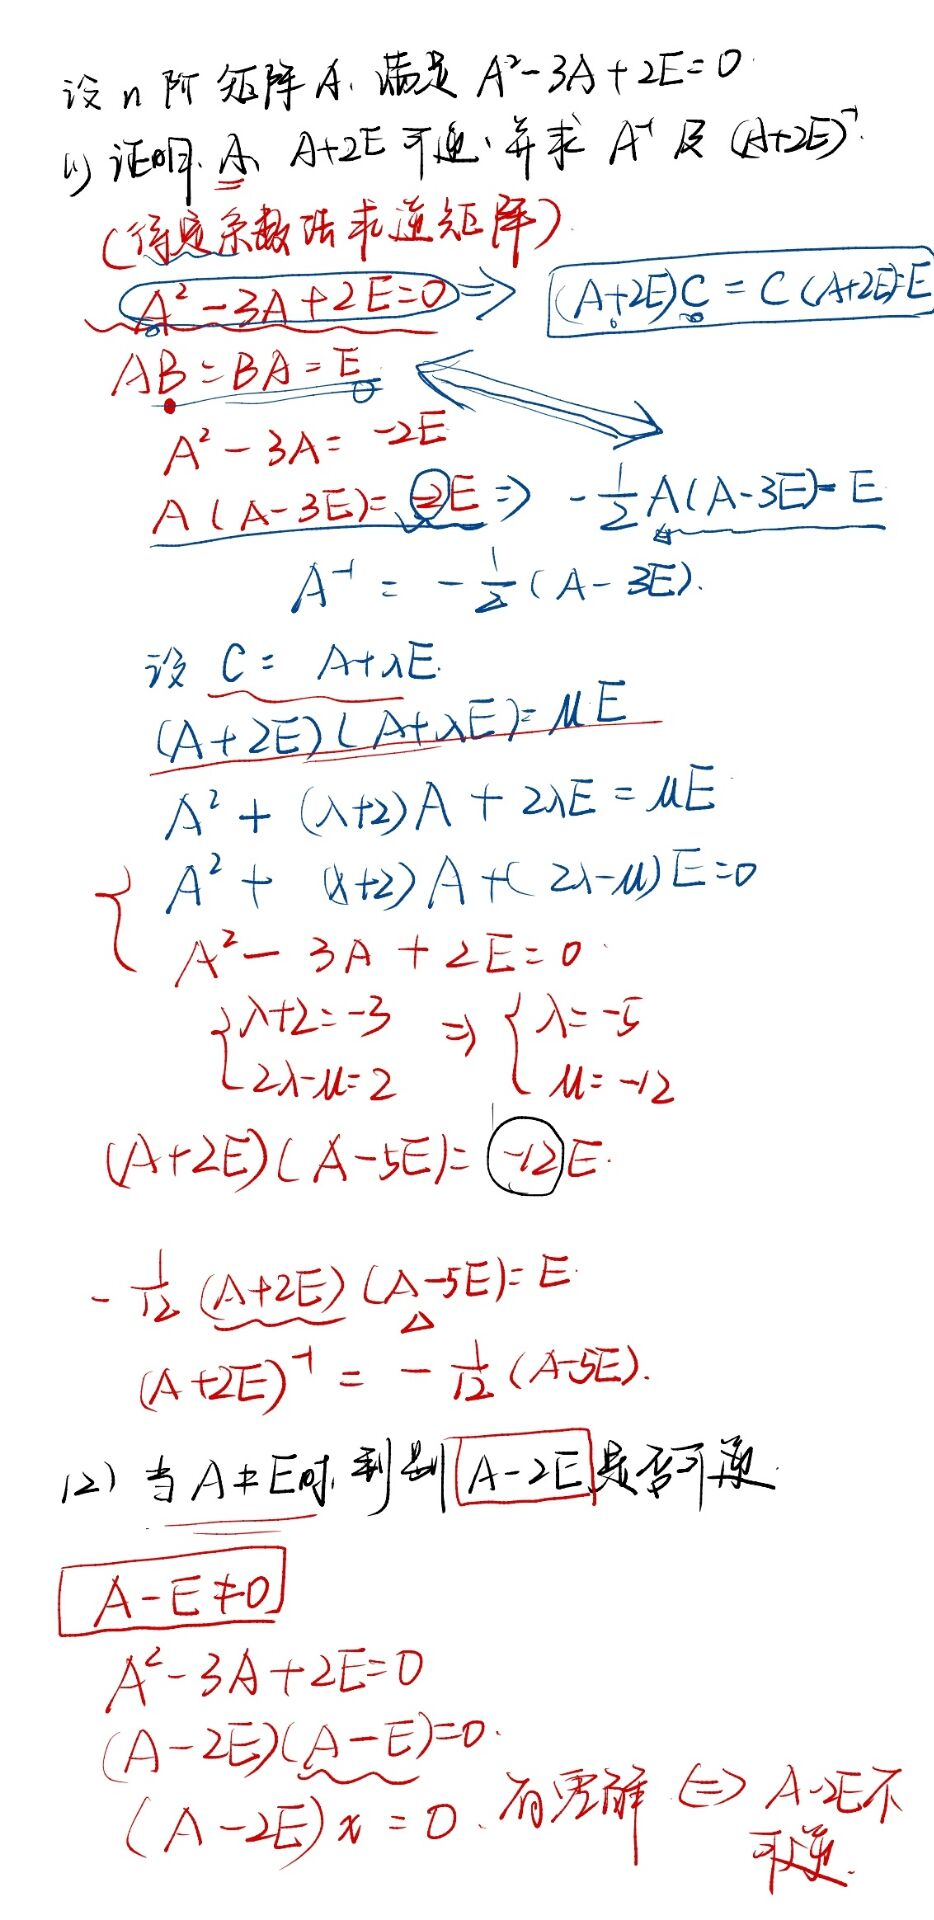 设 n 阶矩阵 A, 满足 A²-3A+2E=0.
(1) 证明: A, A+2E 可逆, 并求 A⁻¹ 及 (A+2E)⁻¹.
(待定系数法求逆矩阵)
A²-3A+2E=0 ⇒ (A+2E)C = C(A+2E)=E
AB=BA=E
A²-3A=-2E
A(A-3E)=-2E ⇒ -1/2 A(A-3E)=E
A⁻¹ = -1/2 (A-3E).
设 C = A+λE.
(A+2E)(A+λE)=μE
A²+(λ+2)A+2λE=μE
A²+(λ+2)A+(2λ-μ)E=0
A²-3A+2E=0.
{λ+2=-3 ⇒ {λ=-5
2λ-μ=2 μ=-12
(A+2E)(A-5E)=-12E.
-1/12 (A+2E)(A-5E)=E.
(A+2E)⁻¹ = -1/12 (A-5E).
(2) 当 A≠E时, 判别 A-2E 是否可逆.
A-E≠0
A²-3A+2E=0
(A-2E)(A-E)=0.
(A-2E)x=0. 有零解 ⇔ A-2E不
可逆.